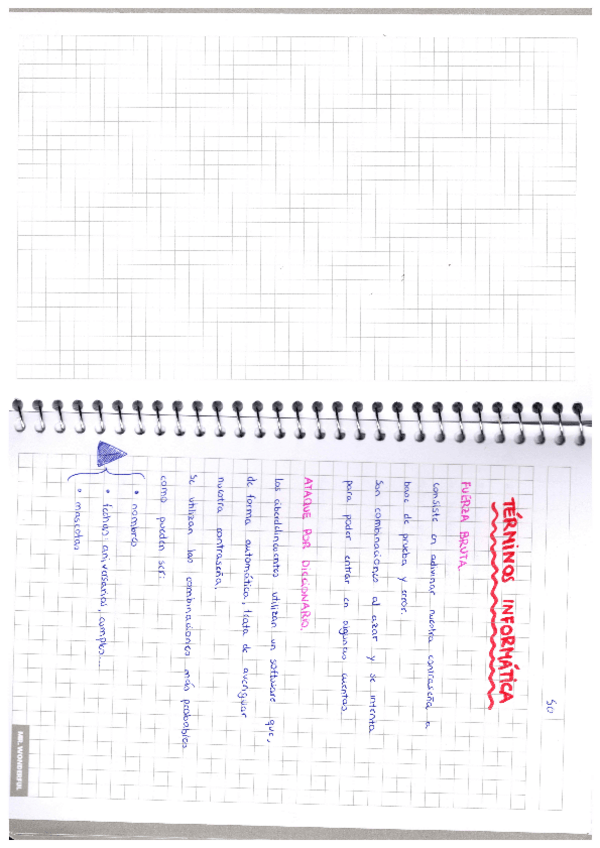 50
TÉRMINOS INFORMÁTICA
FUERZA BRUTA
consiste en adivinar nuestra contraseña a
base de prueba y error.
Son combinaciones al azar y se intenta
para poder entrar en algunas cuentas.
ATAQUE POR DICCIONARIO.
Los ciberdelincuentes utilizan un software que,
de forma automática, trata de averiguar
nuestra contraseña.
Se utilizan las combinaciones más probables
como pueden ser:
• nombres
• fechas: aniversarios, cumples....
• mascotas
MR. WONDERFUL